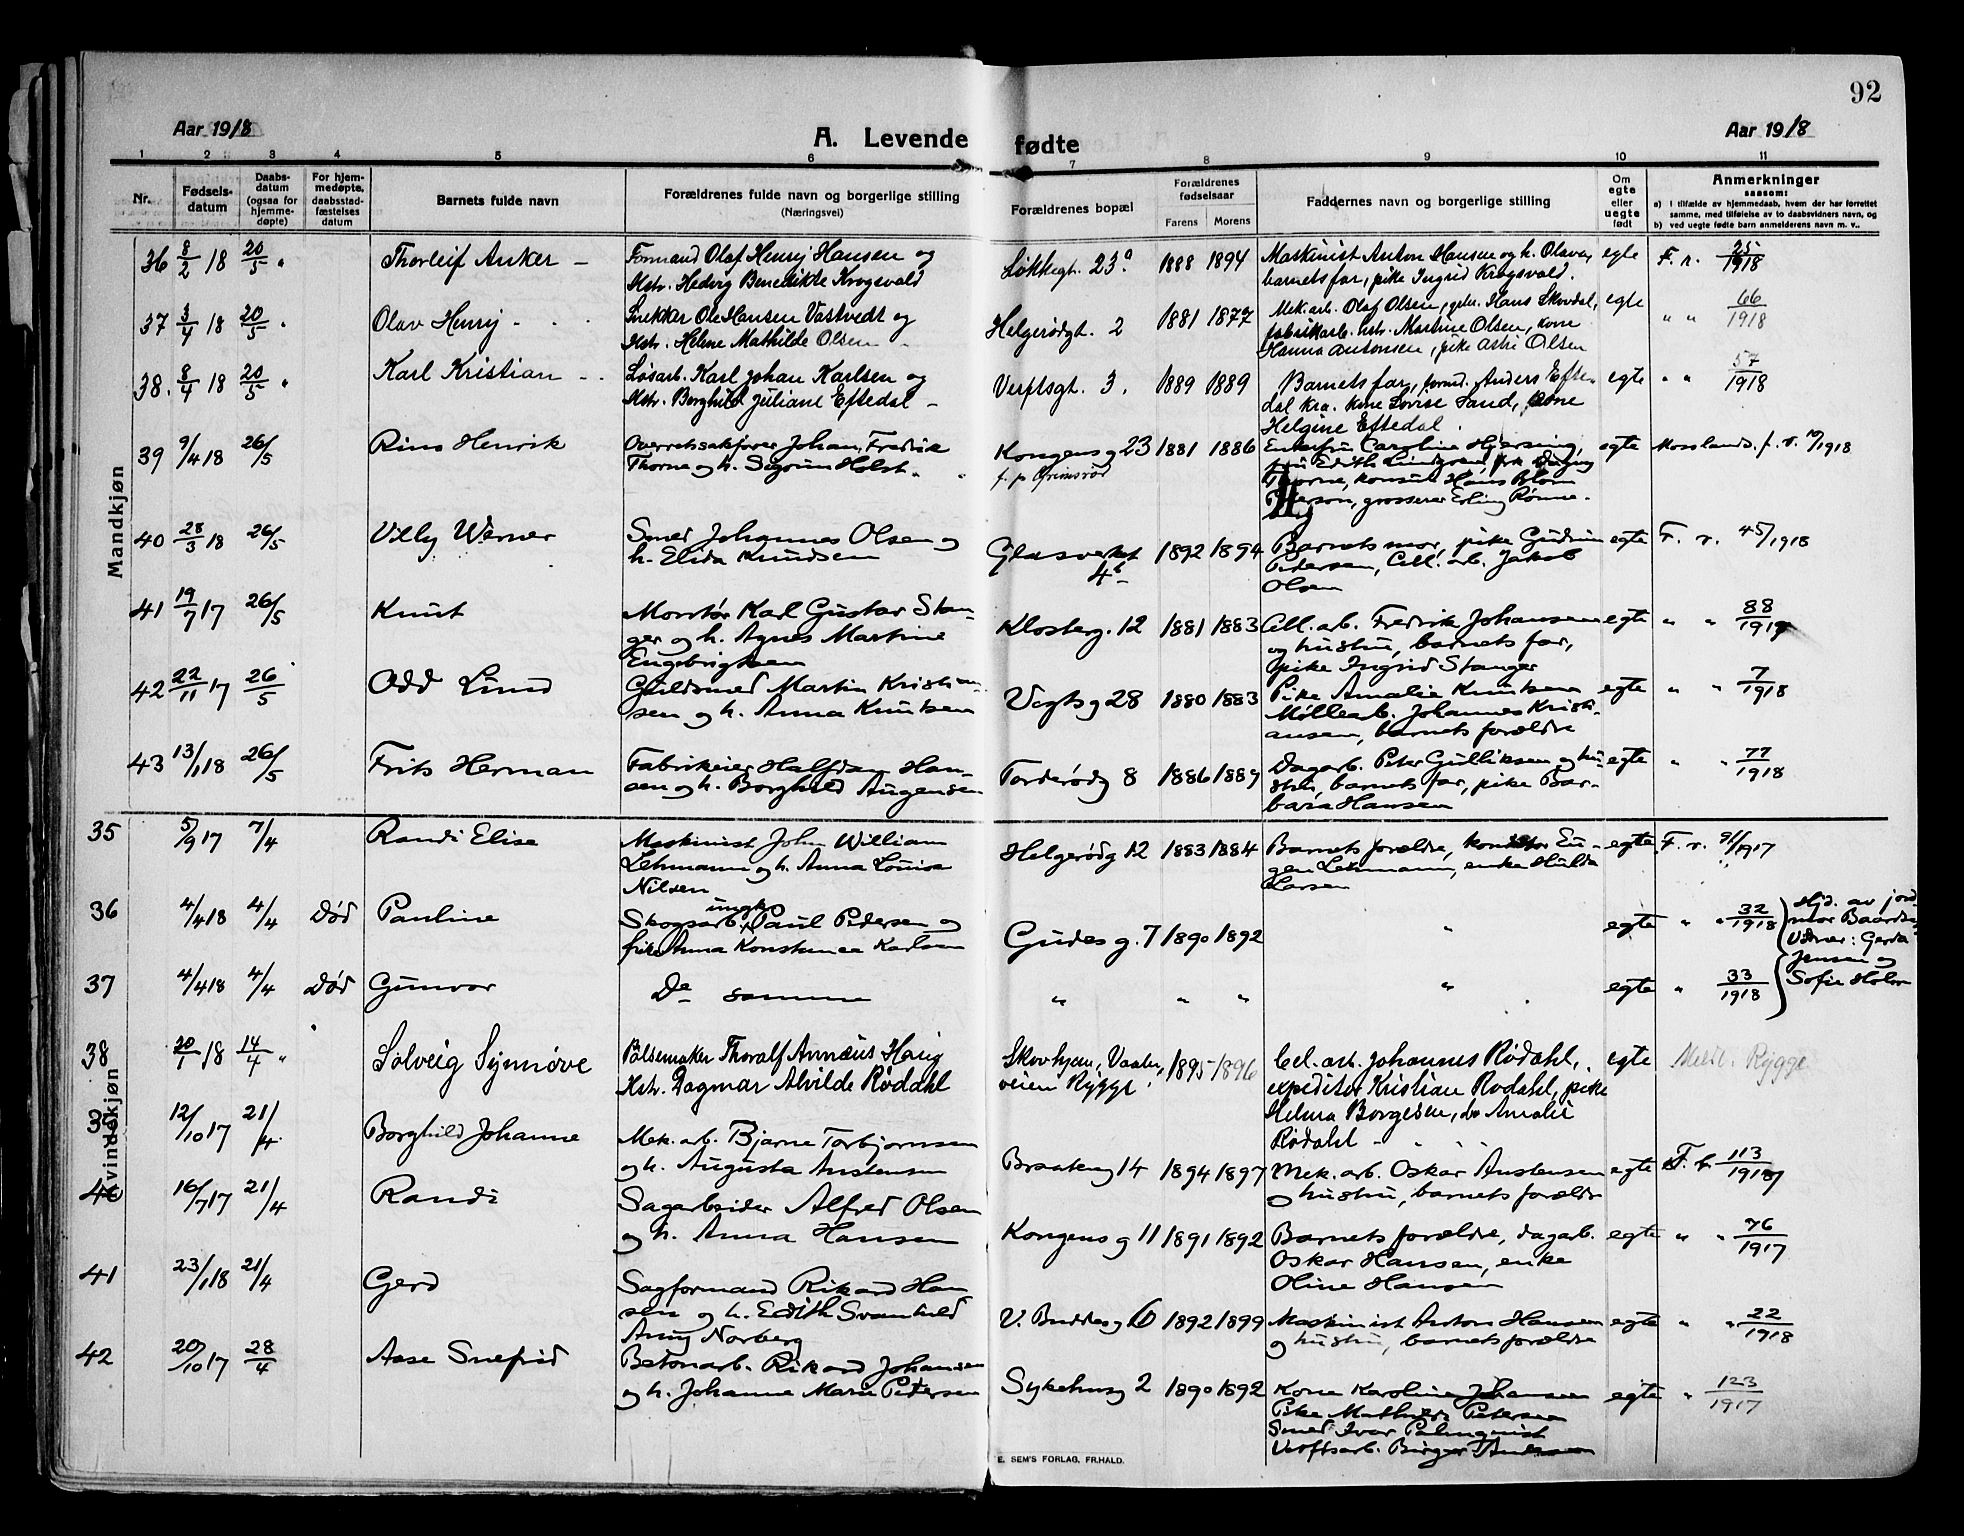 92
Aar 1918
A. Levende fødte
Aar 1918
1 2 3 4 5 6 7 8 9 10 11
Nr.
Fødsels-
datum
Daabs-
datum
(ogsaa for
hjemme-
døpte)
For hjem-
medøpte,
daabsstad-
fæstelses
datum
Barnets fulde navn
Forældrenes fulde navn og borgerlige stilling
(Næringsvei)
Forældrenes bopæl
Forældrenes
fødselsaar
Farens Morens
Faddernes navn og borgerlige stilling
Om
egte
eller
uegte
født
Anmerkninger
saasom:
a) i tilfælde av hjemmedaab, hvem der har forrettet
samme, med tilføielse av to daabsvidners navn, og
b) ved uegte fødte barn anmelderens navn m. v..
Mandkjøn
36 8/2 18 20/5 „ Thorleif Anker – Formand Olaf Henry Hansen og Løkkegt. 23a. 1888 1894 Maskinist Anton Hansen og h. Olava, egte F. r. 25/1918
Hstr. Hedvig Benedikte Krogsvold barnets far, pike Ingrid Krogsvold.
37 3/4 18 20/5 „ Olav Henry - Snekker Ole Hansen Vastvedt og Helgerødgt. 2 1881 1877 Mek. arb. Olaf Olsen, gbr. Hans Skovdal, egte „ „ 66/1918
Hstr. Helene Mathilde Olsen fabrikarb. hstr. Martine Olsen, kone
Hanna Antonsen, pike Astri Olsen
38. 8/4 18 20/5 „ Karl Kristian - Løsarb. Karl Johan Karlsen og Verftsgt. 3. 1889 1889 Barnets far, formd. Anders Efte- egte „ „ 57/1918
Hstr. Borghild Juliane Eftedal – dal kra. kone Lovise Sand, kone
Helgine Eftedal.
39 9/4 18 26/5 Rins Henrik Overretssakfører Johan Fredrik Kongens g 23 1881 1886 Enkefru Caroline Hjersing, egte Mosslands. f. r. /1918
Thorne og h. Sigrun Holst. f. p. Grimsrød fru Edith Lindgren, frk Dagny
Thorne, konsul Hans Blom
Peterson, grosserer Erling Rønne.
40 28/3 18 26/5 Villy Werner Smed Johannes Olsen og Glasverket 1892 1894 Barnets mor, pike Gudrun egte F. r. 45/1918
h. Elida Knudsen 4b Pedersen, Cell. arb. Jakob
Olsen
41 19/7 17 26/5 Knut Montør Karl Gustav Stan- Klosterg. 12 1881 1883 Cell. arb. Fredrik Johansen egte „ „ 88/1917
ger og h. Agnes Martine og hustru, barnets far,
Engebrigtsen pike Ingrid Stanger
42 22/11 17 26/5 Odd Lund Guldsmed Martin Kristian- Vogts g 28 1880 1883 Pike Amalie Knutsen egte „ „ 7/1918
sen og h. Anna Knutsen Møllearb. Johannes Kristi-
ansen, barnets forældre
43 13/1 18 26/5 Frits Herman Fabrikeier Halfdan Han- Tørderødg 8 1886 1889 Dagarb. Peter Gulliksen og hu- egte „ „ 77/1918
sen og h. Borghild Augensen stru, barnets far, pike Bar-
bara Hansen
Kvindekjøn
35 5/9 17 7/4 Randi Elise Maskinist John William Helgerødg 12 1883 1884 Barnets forældre, konditor Eu- egte F. r. 91/1917
Lehmann og h. Anna Louise gen Lehmann, enke Hulda
Nilsen Larsen
36 4/4 18 4/4 Død Pauline Skogsarb. ungk. Paul Pedersen og Gudes g. 7 1890 1892 „ egte „ „ 32/1918 Hjd. av jord-
pike Anna Konstanse Karlsen mor Baardseng
Vidner: Gerda
37 4/4 18 4/4 Død Gunvor De samme „ „ „ „ egte „ 33/1918 Jensen og
Sofie Holm
38 20/1 18 14/4 „ Solveig Synnøve Pølsemaker Thoralf Annæus Haug Skovhjem, Vaaler- 1895 1896 Cel. arb. Johannes Rødahl, egte Meldt. Rygge
Hstr. Dagmar Alvilde Røddahl veien Rygge expeditør Kristian Rodahl, pike
Helma Borgesen, do Amalie
Rødahl -
39 12/10 17 21/4 Borghild Johanne Mek. arb. Bjarne Torbjørnsen Braateng 14 1894 1897 Mek. arb. Oskar Austensen egte F. r. 113/1917
og h. Augusta Austensen og hustru, barnets forældre
40 16/7 17 21/4 Randi Sagarbeider Alfred Olsen Kongens g 11 1891 1892 Barnets forældre, dagarb. egte „ „ 76/1917
og h. Anna Hansen Oskar Hansen, enke
Oline Hansen
41 23/1 18 21/4 Gerd Sagformand Rikard Han- V. Buddes g 6 1892 1899 Maskinist Anton Hansen egte „ „ 22/1918
sen og h. Edith Svanhild og hustru, barnets forældre
Anny Norberg
42 20/10 17 28/4 Aase Snefrid Betonarb. Rikard Johansen Sykehusg 2 1890 1892 Kone Karoline Johansen egte „ 123/1917
og h. Johanne Marie Petersen Pike Mathilde Petersen
Smed Ivar Palmquist
Verftsarb. Birger Andersen
E. SEM'S FORLAG, FR.HALD.